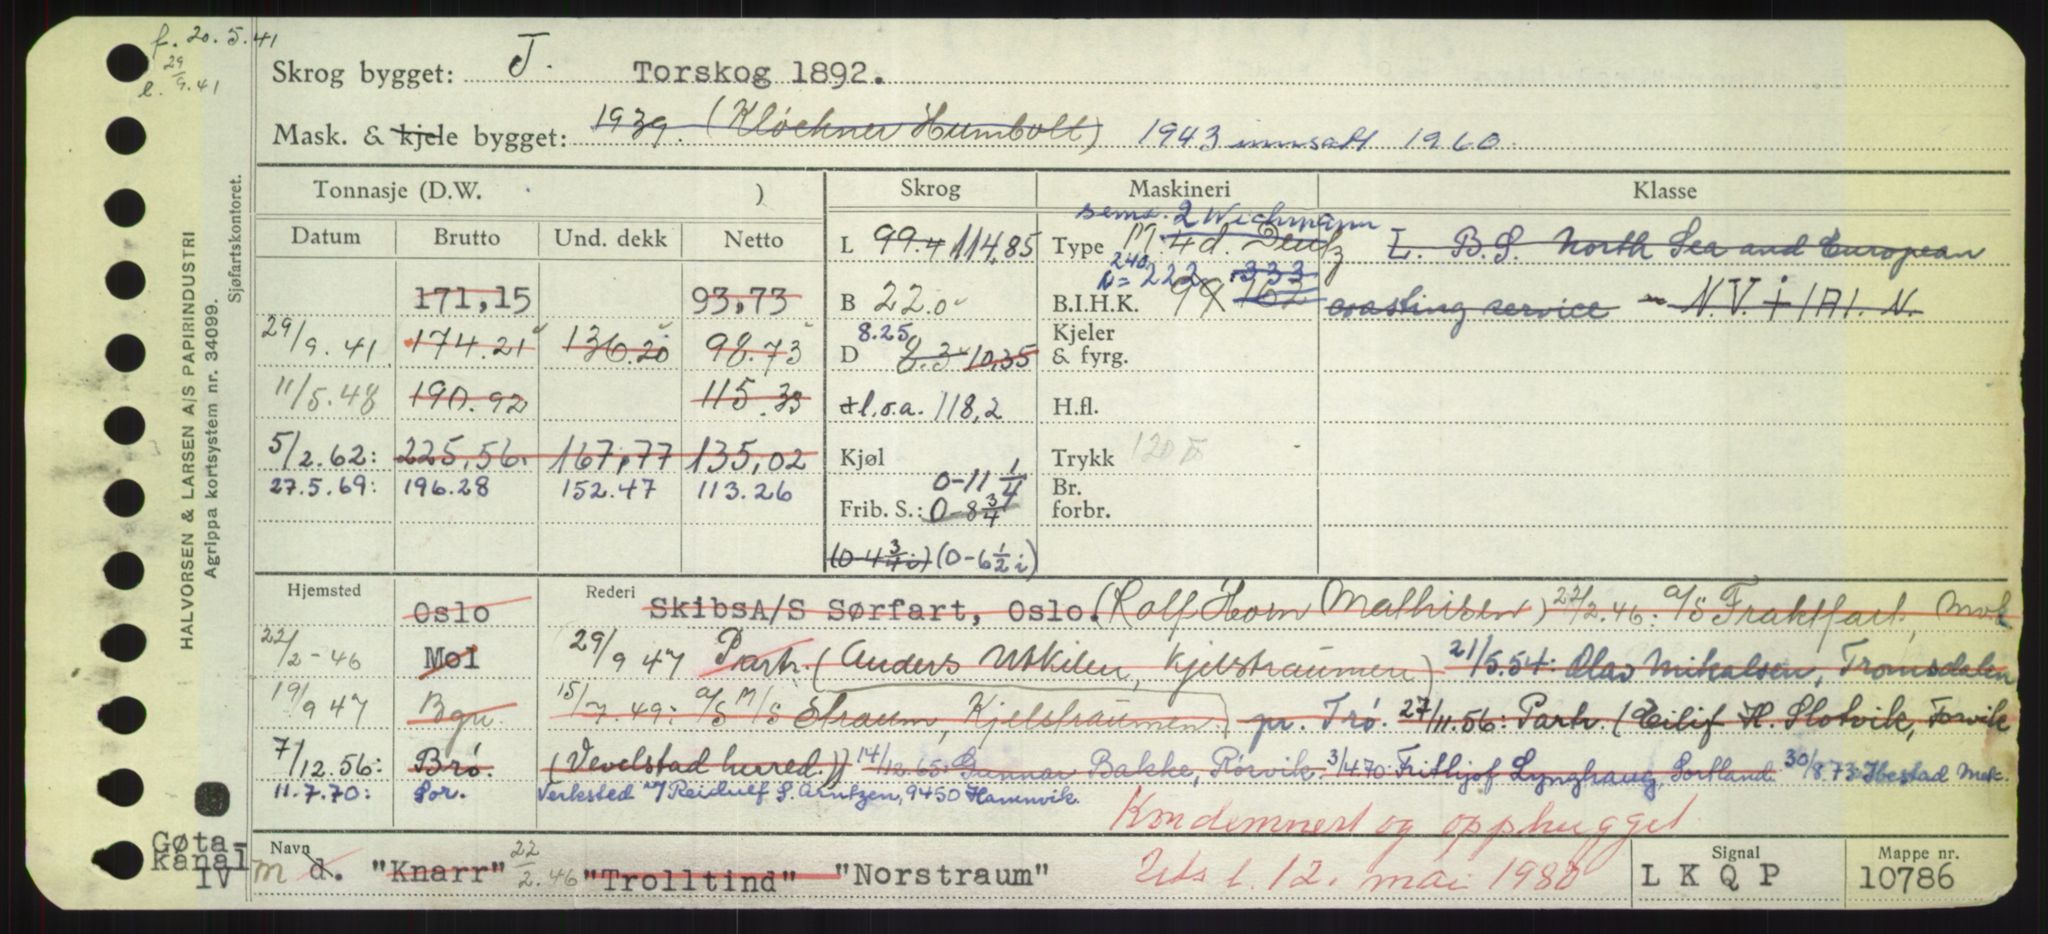 f. 20.5.41
29/9.41
HALVORSEN & LARSEN A/S PAPIRINDUSTRI
Agrippa kortsystem nr. 34099.
Sjøfartskontoret.
Skrog bygget: J. Torskog 1892.
Mask. & kjele bygget: 1939. (Kløckner Humbolt) 1943 innsatt 1960.
Tonnasje (D.W. )
Skrog
Maskineri
Klasse
Datum Brutto Und. dekk Netto
171,15 93,73
29/9.41 174.21 136.20 98.73
11/5.48 190.92 115.33
5/2.62: 225,56. 167,77 135,02
27.5.69: 196.28 152.47 113.26
L 99.4 114,85
B 22.0
8.25
D 8.3 10,35
l.o.a. 118,2
Kjøl
0-11 1/4
Frib. S.: 0-8 3/4
(0-4 3/4 i) (0-6 1/2 i)
sems. 2 Wichmann
Type M 4 d. Deutz
240
N= 222 333
B.I.H.K. 99 162
Kjeler & fyrg.
H.fl.
Trykk
Br. forbr.
L. B.S. North Sea and European
coasting service N.V. + 1A1. N.
Hjemsted Oslo
Rederi SkibsA/S Sørfart, Oslo. (Rolf Horn Mathisen) 22/2.46: A/S Fraktfart, Mol
22/2-46 Mol 29/9 47 Partr. (Anders Utkilen, Kjelstraumen) 21/5.54: Olav Mikalsen, Tromsdalen
19/9 47 Bgn. 15/7.49: A/S M/S Straum, Kjelstraumen) pr. Trø. 27/11.56: Partr. (Eilif H. Slotvik, Forvik
7/12.56: Brø. (Vevelstad herred.)) 14/12.65: Gunnar Bakke, Rørvik. 3/4.70: Frithjof Lynghaug, Sortland. 30/8.73: Ibestad Mek.
11.7.70: Sor. Verksted v/ Reidulf S. Arntzen, 9450 Hamnvik.
Kondemnert og opphugget.
Gøta-
kanal
IV
Navn
m d. "Knarr" 22/2.46 "Trolltind" "Norstraum" Uts l. 12. mai 1980
Signal
L K Q P
Mappe nr.
10786